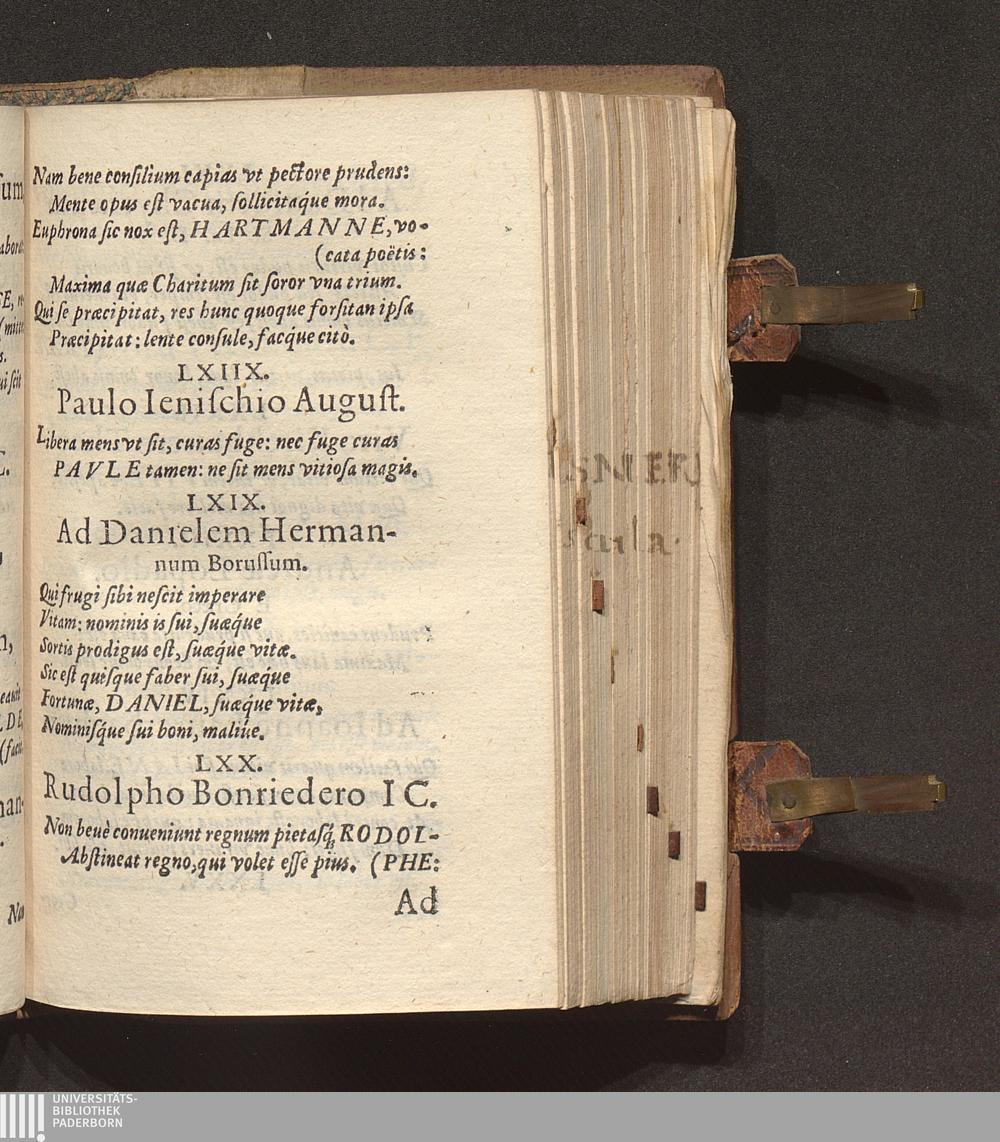 Nam bene conſilium capias vt pectore prudens:
Mente opus eſt vacua, ſollicitaq́ue mora.
Euphrona ſic nox eſt, HARTMANNE, vo-
(cata poëtis:
Maxima quæ Charitum ſit ſoror vna trium.
Qui ſe præcipitat, res hunc quoque forſitan ipſa
Præcipitat: lente conſule, facq́ue citò.
LXIIX.
Paulo Ieniſchio Auguſt.
Libera mens vt ſit, curas fuge: nec fuge curas
PAVLE tamen: ne ſit mens vitioſa magis.
LXIX.
Ad Danielem Herman-
num Boruſſum.
Qui frugi ſibi neſcit imperare
Vitam: nominis is ſui, ſuæq́ue
Sortis prodigus eſt, ſuæq́ue vitæ.
Sic eſt quiſque faber ſui, ſuæq́ue
Fortunæ, DANIEL, ſuæque vitæ,
Nominiſq́ue ſui boni, maliúe.
LXX.
Rudolpho Bonriedero IC.
Non beuè conueniunt regnum pietaſq́ꝫ RODOL-
Abſtineat regno, qui volet eſſe pius. (PHE:
Ad
UNIVERSITÄTS-
BIBLIOTHEK
PADERBORN